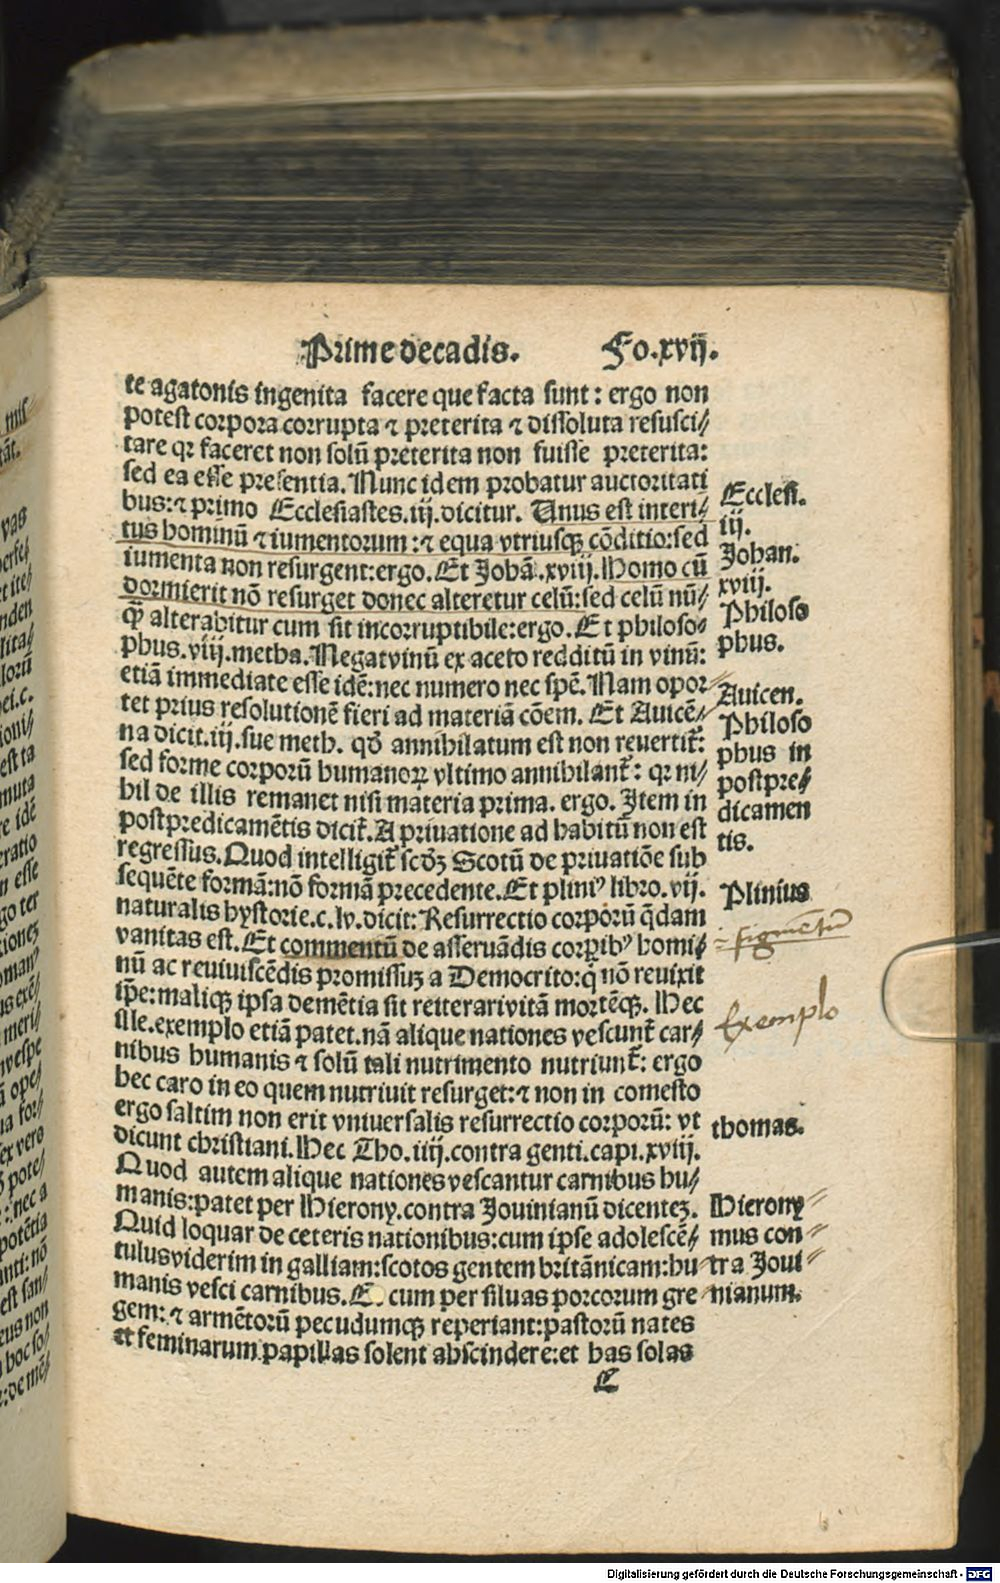 Prime decadis. Fo.xvij.
te agatonis ingenita facere que facta sunt: ergo non
potest corpora corrupta ⁊ preterita ⁊ dissoluta resusci/
tare qꝛ faceret non solū preterita non fuisse preterita:
sed ea esse presentia. Nunc idem probatur auctoritati
bus:⁊ primo Ecclesiastes.iij.dicitur. Unus est interi/
tus hominū ⁊ iumentorum:⁊ equa vtriusqꝫ cōditio:sed
iumenta non resurgent:ergo. Et Johā.xviij. Homo cū
dormierit nō resurget donec alteretur celū:sed celū nū/
qꝫ alterabitur cum sit incorruptibile:ergo. Et philoso/
phus.viij.metha. Negat vinū ex aceto redditū in vinū:
etiā immediate esse idē:nec numero nec spē. Nam opor/
tet prius resolutionē fieri ad materiā cōem. Et Auicē/
na dicit.iij.sue meth. qđ annihilatum est non reuertit̄:
sed forme corporū humanoꝝ vltimo annihilant̄: qꝛ ni/
hil de illis remanet nisi materia prima. ergo. Item in
postpredicamētis dicit̄. A priuatione ad habitū non est
regressus. Quod intelligit̄ scdꝫ Scotū de priuatiōe sub
sequēte formā:nō formā precedente. Et pliniꝰ libro.vij.
naturalis hystorie.c.lv.dicit: Resurrectio corporū q̄dam
vanitas est. Et commentū de asseruādis corpꝑibꝰ homi/
nū ac reuiuiscēdis promissuꝫ a Democrito:q̇ nō reuixit
ip̄e:maliqꝫ ipsa demētia sit reiterari vitā mortēqꝫ. Hec
ille.exemplo etiā patet.nā alique nationes vescunt̄ car/
nibus humanis ⁊ solū tali nutrimento nutriunt̄: ergo
hec caro in eo quem nutriuit resurget:⁊ non in comesto
ergo saltim non erit vniuersalis resurrectio corporū: vt
dicunt christiani. Hec Tho.iiij.contra genti.capi.xviij.
Quod autem alique nationes vescantur carnibus hu/
manis:patet per Hierony.contra Jouinianū dicenteꝫ.
Quid loquar de ceteris nationibus:cum ipse adolescē/
tulus viderim in galliam:scotos gentem britānicam:hu
manis vesci carnibus. E. cum per siluas porcorum gre
gem: ⁊ armētorū pecudumqꝫ reperiant:pastorū nates
et feminarum papillas solent abscindere:et has solas
C
Ecclesi.
iij.
Johan.
xviij.
Philoso
phus.
Auicen.
Philoso
phus in
postpre/
dicamen
tis.
Plinius
figmētū
Exemplo
thomas.
Hierony
mus con
tra Joui
nianum.
Digitalisierung gefördert durch die Deutsche Forschungsgemeinschaft - DFG